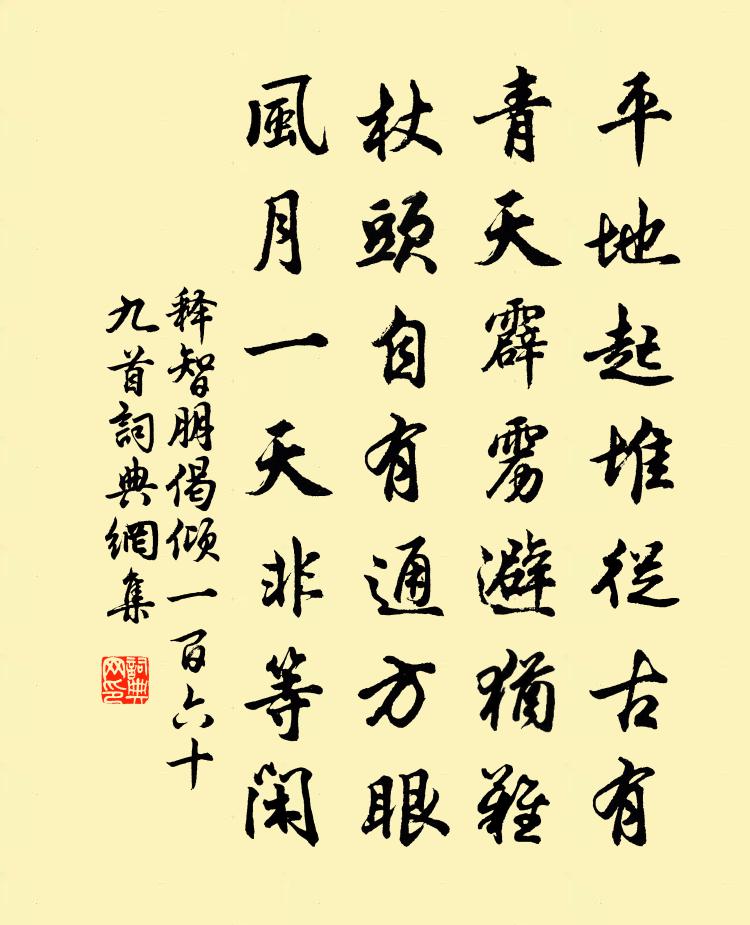 平地起堆從古有
青天霹雳避猶難
杖頭自有通方眼
風月一天非等閑
释智朋偈倾一百六十
九首詞典網集
詞典网印